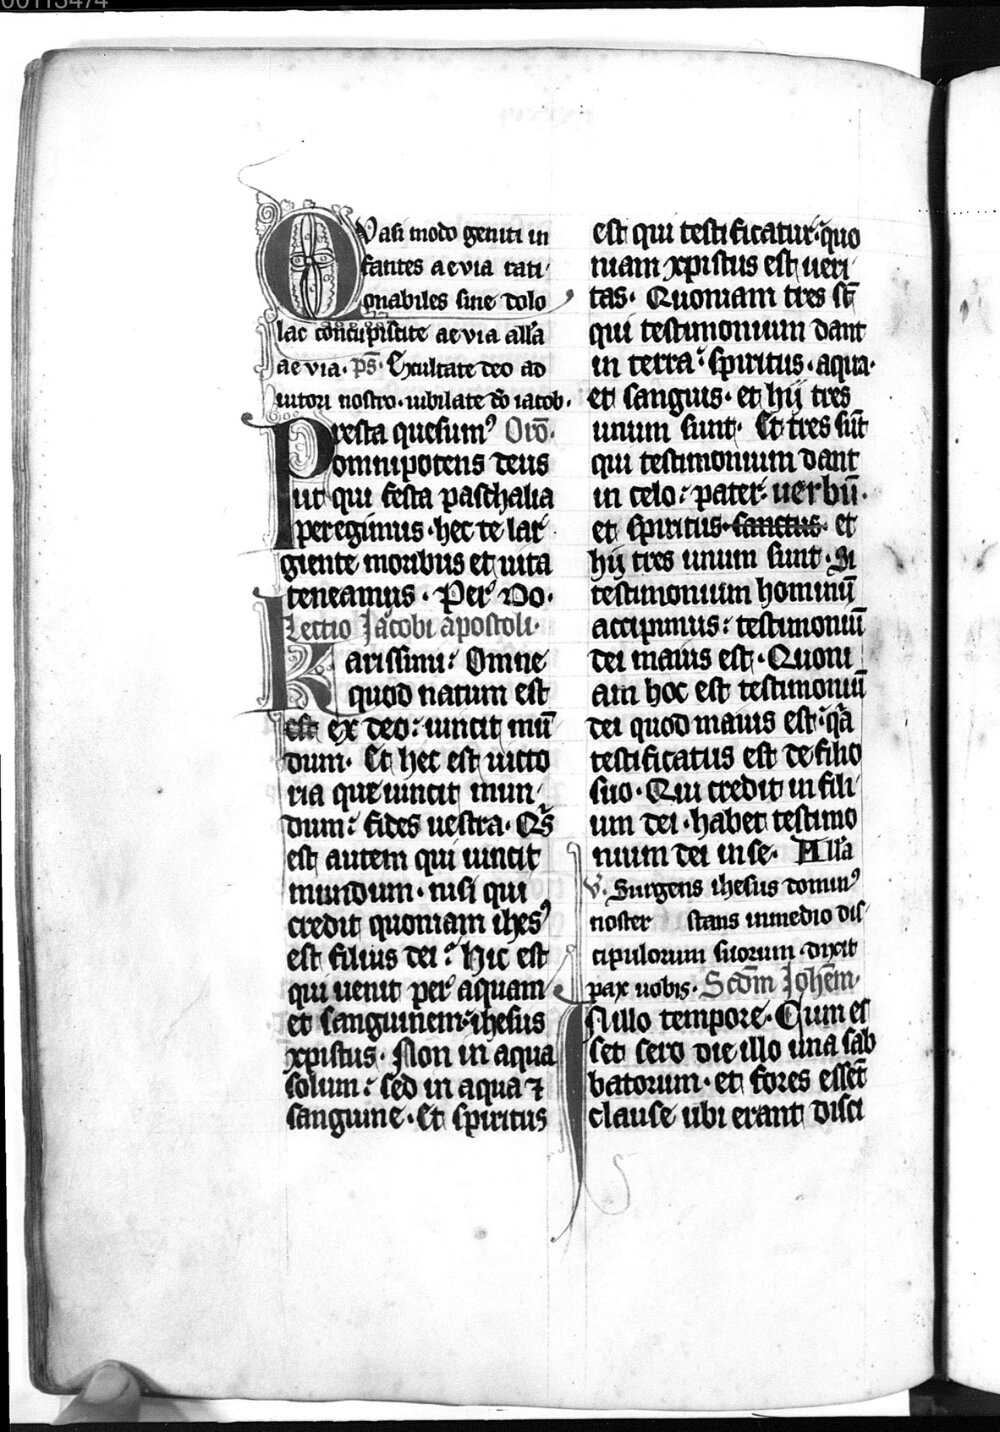 00113474
Quasi modo geniti in
fantes aevia rati
onabiles sine dolo
lac concupiscite aevia all'a
aevia. ps̄. Exultate deo ad
iutori nostro. iubilate dō iacob.
Presta quesum⁹ Orō.
omnipotens deus
ut qui festa paschalia
peregimus. hec te lar
giente moribus et uita
teneamus. Per Do.
Lectio Jacobi apostoli.
Karissimi: Omne
quod natum est
est ex deo: uincit mū
dum. Et hec est uicto
ria que uincit mun
dum: fides uestra. Qs
est autem qui uincit
mundum. nisi qui
credit quoniam ihes⁹
est filius dei? Hic est
qui uenit per aquam
et sanguinem: ihesus
xpistus. Non in aqua
solum: sed in aqua ⁊
sanguine. Et spiritus
est qui testificatur: quo
niam xpistus est ueri
tas. Quoniam tres st̄
qui testimonium dant
in terra: spiritus. aqua.
et sanguis. et hij tres
unum sunt. Et tres sūt
qui testimonium dant
in celo: pater. uerbū.
et spiritus. sanctus. et
hij tres unum sunt. Si
testimonium hominū
accipimus: testimoniū
dei maius est. Quoni
am hoc est testimoniū
dei quod maius est: qa
testificatus est de filio
suo. Qui credit in fili
um dei. habet testimo
nium dei in se. All'a
v. Surgens ihesus domin⁹
noster stans in medio dis
cipulorum suorum. dixit
pax uobis. Scdm Johem.
In illo tempore. Cum es
set sero die illo una sab
batorum. et fores essēt
clause ubi erant disci